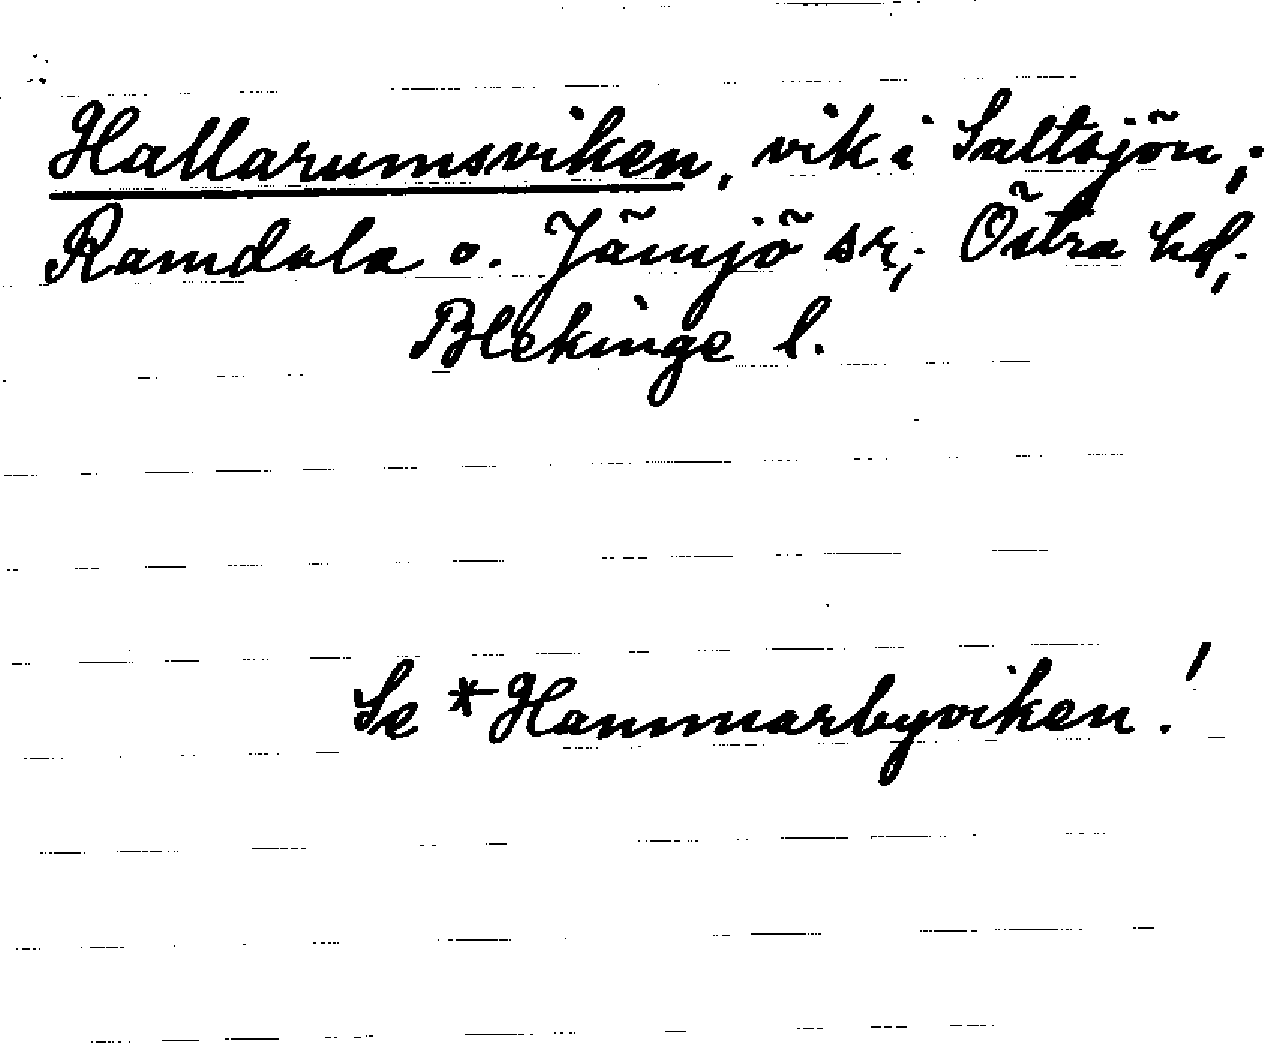 Hallarumsviken, vik i Saltsjön;
Ramdala o. Jämjö sr; Östra hd;
Blekinge l.
Se *Hammarbyviken!